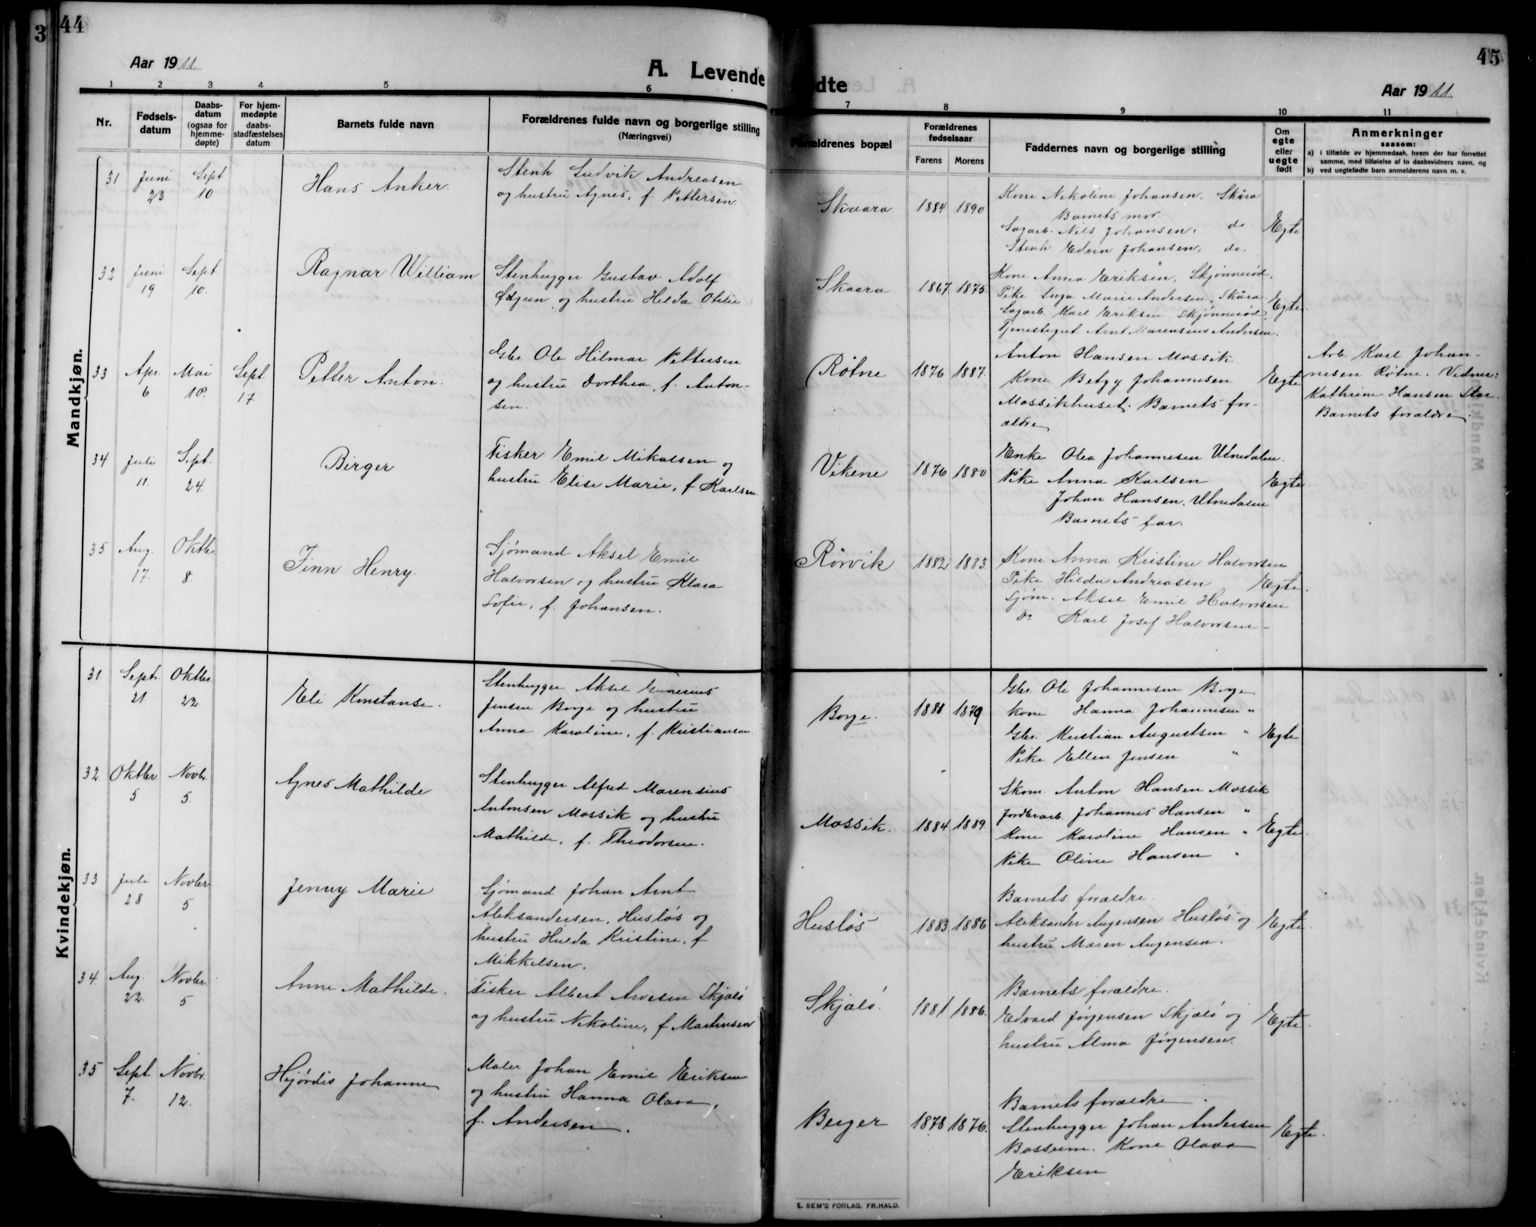 44
3
45
Aar 1911
A. Levende
dte
Aar 1911
1 2 3 4 5 6
7 8 9 10 11
Nr.
Fødsels-
datum
Daabs-
datum
(ogsaa for
hjemme-
døpte)
For hjem-
medøpte
daabs-
stadfæstelses
datum
Barnets fulde navn
Forældrenes fulde navn og borgerlige stilling
(Næringsvei)
Forældrenes bopæl
Forældrenes
fødselsaar
Farens Morens
Faddernes navn og borgerlige stilling
Om
egte
eller
uegte
født
Anmerkninger
saasom:
a) i tilfælde av hjemmedaab, hvem der har forrettet
samme, med tilføielse af to daabsvidners navn, og
b) ved uegtefødte barn anmelderens navn m. v.
Mandkjøn.
31 Juni 23 Sept 10
Hans Anker
Stenh Ludvik Andreasen
og hustru Agnes, f. Pettersen
Skaara 1884 1890
Kone Nikoline Johansen, Skåra
Barnets mor
Sagarb. Nils Johansen, do
Stenh Edvin Johansen, do.
Egte
32 Juni 19 Sept. 10.
Ragnar William
Stenhugger Gustav Adolf
og hustru Hilda
Skaara 1867 1875
Kone Anna Eriksen, Skjønnerød.
Pike Inga Marie Andersen, Skåra
Sagarb. Karl Eriksen, Skjønnerød,
Tjenestegut Arnt Marensius Andersen.
Egte
33 Apr. 6 Mai 18. Sept. 17
Petter Anton.
Gbr. Ole Hilmar Pettersen
og hustru Dorthea, f. Anton-
sen.
Røtne 1876 1887
Anton Hansen Mossik
Kone Betzy Johannesen
Mossikhuset. Barnets for-
ældre
Egte
Arb. Karl Johan-
nesen Røtne. Vidner:
Kathrine Hansen
Barnets forældre
34 Juli 11. Sept. 24.
Birger
Fisker Emil Mikalsen og
hustru Elise Marie, f Karlsen
Vikene 1876 1880
Enke Olea Johannesen Utnedalen.
Pike Anna Karlsen
Johan Hansen, Utnedalen
Barnets far.
Egte
35 Aug. 17. Oktbr. 8.
Finn Henry.
Sjømand Aksel Emil
Halvorsen og hustru Klara
Sofie, f. Johansen.
Rørvik 1882 1883
Kone Anna Kristine Halvorsen
Pike Hilda Andreasen
Sjøm. Aksel Emil Halvorsen
do Karl Josef Halvorsen
Egte.
Kvindekjøn.
31 Sept. 21 Oktbr. 22
Eli Konstanse.
Stenhugger Aksel
Jensen Borge og hustru
Anna Karoline, f. Kristiansen
Borge. 1881 1879
Gbr. Ole Johannesen Borge
Kone Hanna Johannesen "
Gbr. Kristian Augustsen "
Pike Ellen Jensen "
Egte
32 Oktbr. 5 Novbr. 5.
Agnes Mathilde
Stenhugger Alfred Marensius
Antonsen Mossik og hustru
Mathilde, f. Theodorsen.
Mossik. 1884 1889
Skom. Anton Hansen Mossik
Johannes Hansen "
Kone Karoline Hansen "
Pike Oline Hansen "
Egte.
33 Juli 28 Novbr 5
Jenny Marie
Sjømand Johan Arnt
Aleksandersen, Husløs og
hustru Hulda Kristine, f
Mikkelsen.
Husløs 1883 1886
Barnets forældre.
Aleksander Husløs og
hustru Maren
Egte.
34 Aug. 22. Novbr 5
Anne Mathilde.
Fisker Albert Arvesen Skjælø
og hustru Nikoline, f Martinsen
Skjælø. 1881 1886.
Barnets forældre.
Edvard Jørgensen Skjælø og
hustru Alma Jørgensen.
Egte.
35 Sept 7. Novbr. 12.
Hjørdis Johanne
Maler Johan Emil Eriksen
og hustru Hanna Olava,
f. Andersen.
Berger 1878 1876.
Barnets forældre.
Stenhugger Johan Andersen
Kone Olava
Eriksen
Egte.
E. SEM'S FORLAG, FR.HALD.